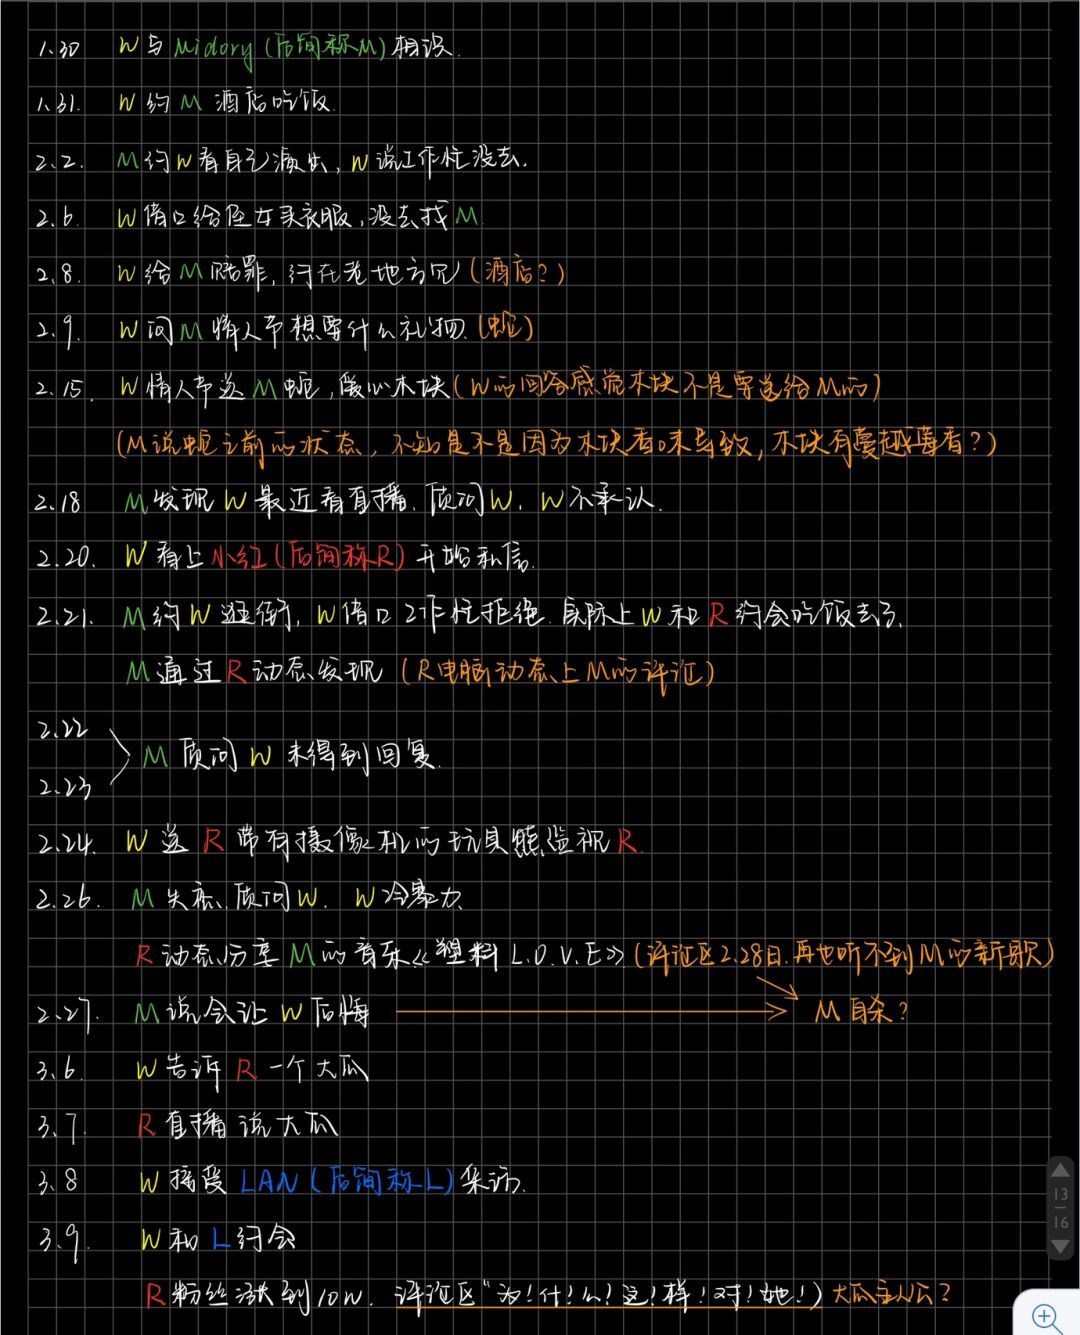 1.30 W与Midory(后简称M)相识.
1.31. W约M酒店吃饭.
2.2. M约W看自己演出,W说工作忙没去.
2.6. W借口给侄女买衣服,没去找M.
2.8. W给M赔罪,约在老地方见(酒店?)
2.9. W问M情人节想要什么礼物.(蛇)
2.15. W情人节送M蛇,爱心木块(W的回答感觉木块不是要送给M的)
(M说蛇之前的状态,不知是不是因为木块香味导致,木块有蔓越莓香?)
2.18 M发现W最近看直播.质问W.W不承认.
2.20. W看上小红(后简称R)开始私信.
2.21. M约W逛街,W借口工作忙拒绝.实际上W和R约会吃饭去了.
M通过R动态发现(R电脑动态上M的评论)
2.22
2.23 M质问W未得到回复.
2.24. W送R带有摄像机的玩具熊监视R.
2.26. M失态.质问W. W冷暴力
R动态分享M的音乐《塑料L.O.V.E》(评论区2.28日.再也听不到M的新歌)
2.27. M说会让W后悔 M自杀?
3.6. W告诉R一个大瓜
3.7. R直播说大瓜
3.8 W接受LAN(后简称L)采访.
3.9. W和L约会
R粉丝涨到10W.评论区"为!什!么!这!样!对!她!)大瓜主人公?
13
16